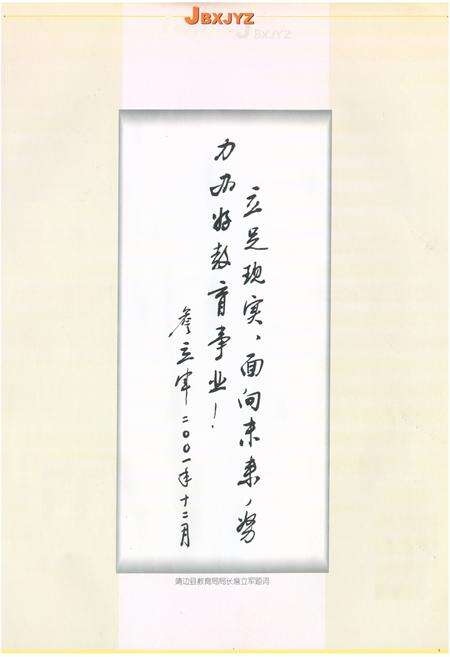 JBXJYZ
JBXJYZ
立足现实、面向未来，努
力办好教育事业！
詹立军二〇〇一年十二月
靖边县教育局局长詹立军题词